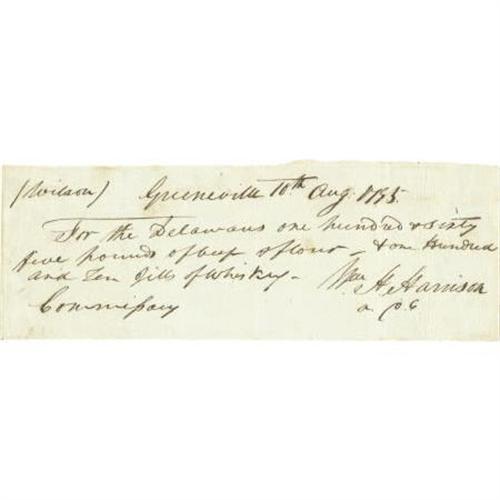 (Wilson) Greeneville 10th Aug. 1795.
For the Delawares one hundred & sixty
five pounds of beef & flour - & one Hundred
and Ten Gills of Whiskey -
Wm H Harrison
Commissary
a